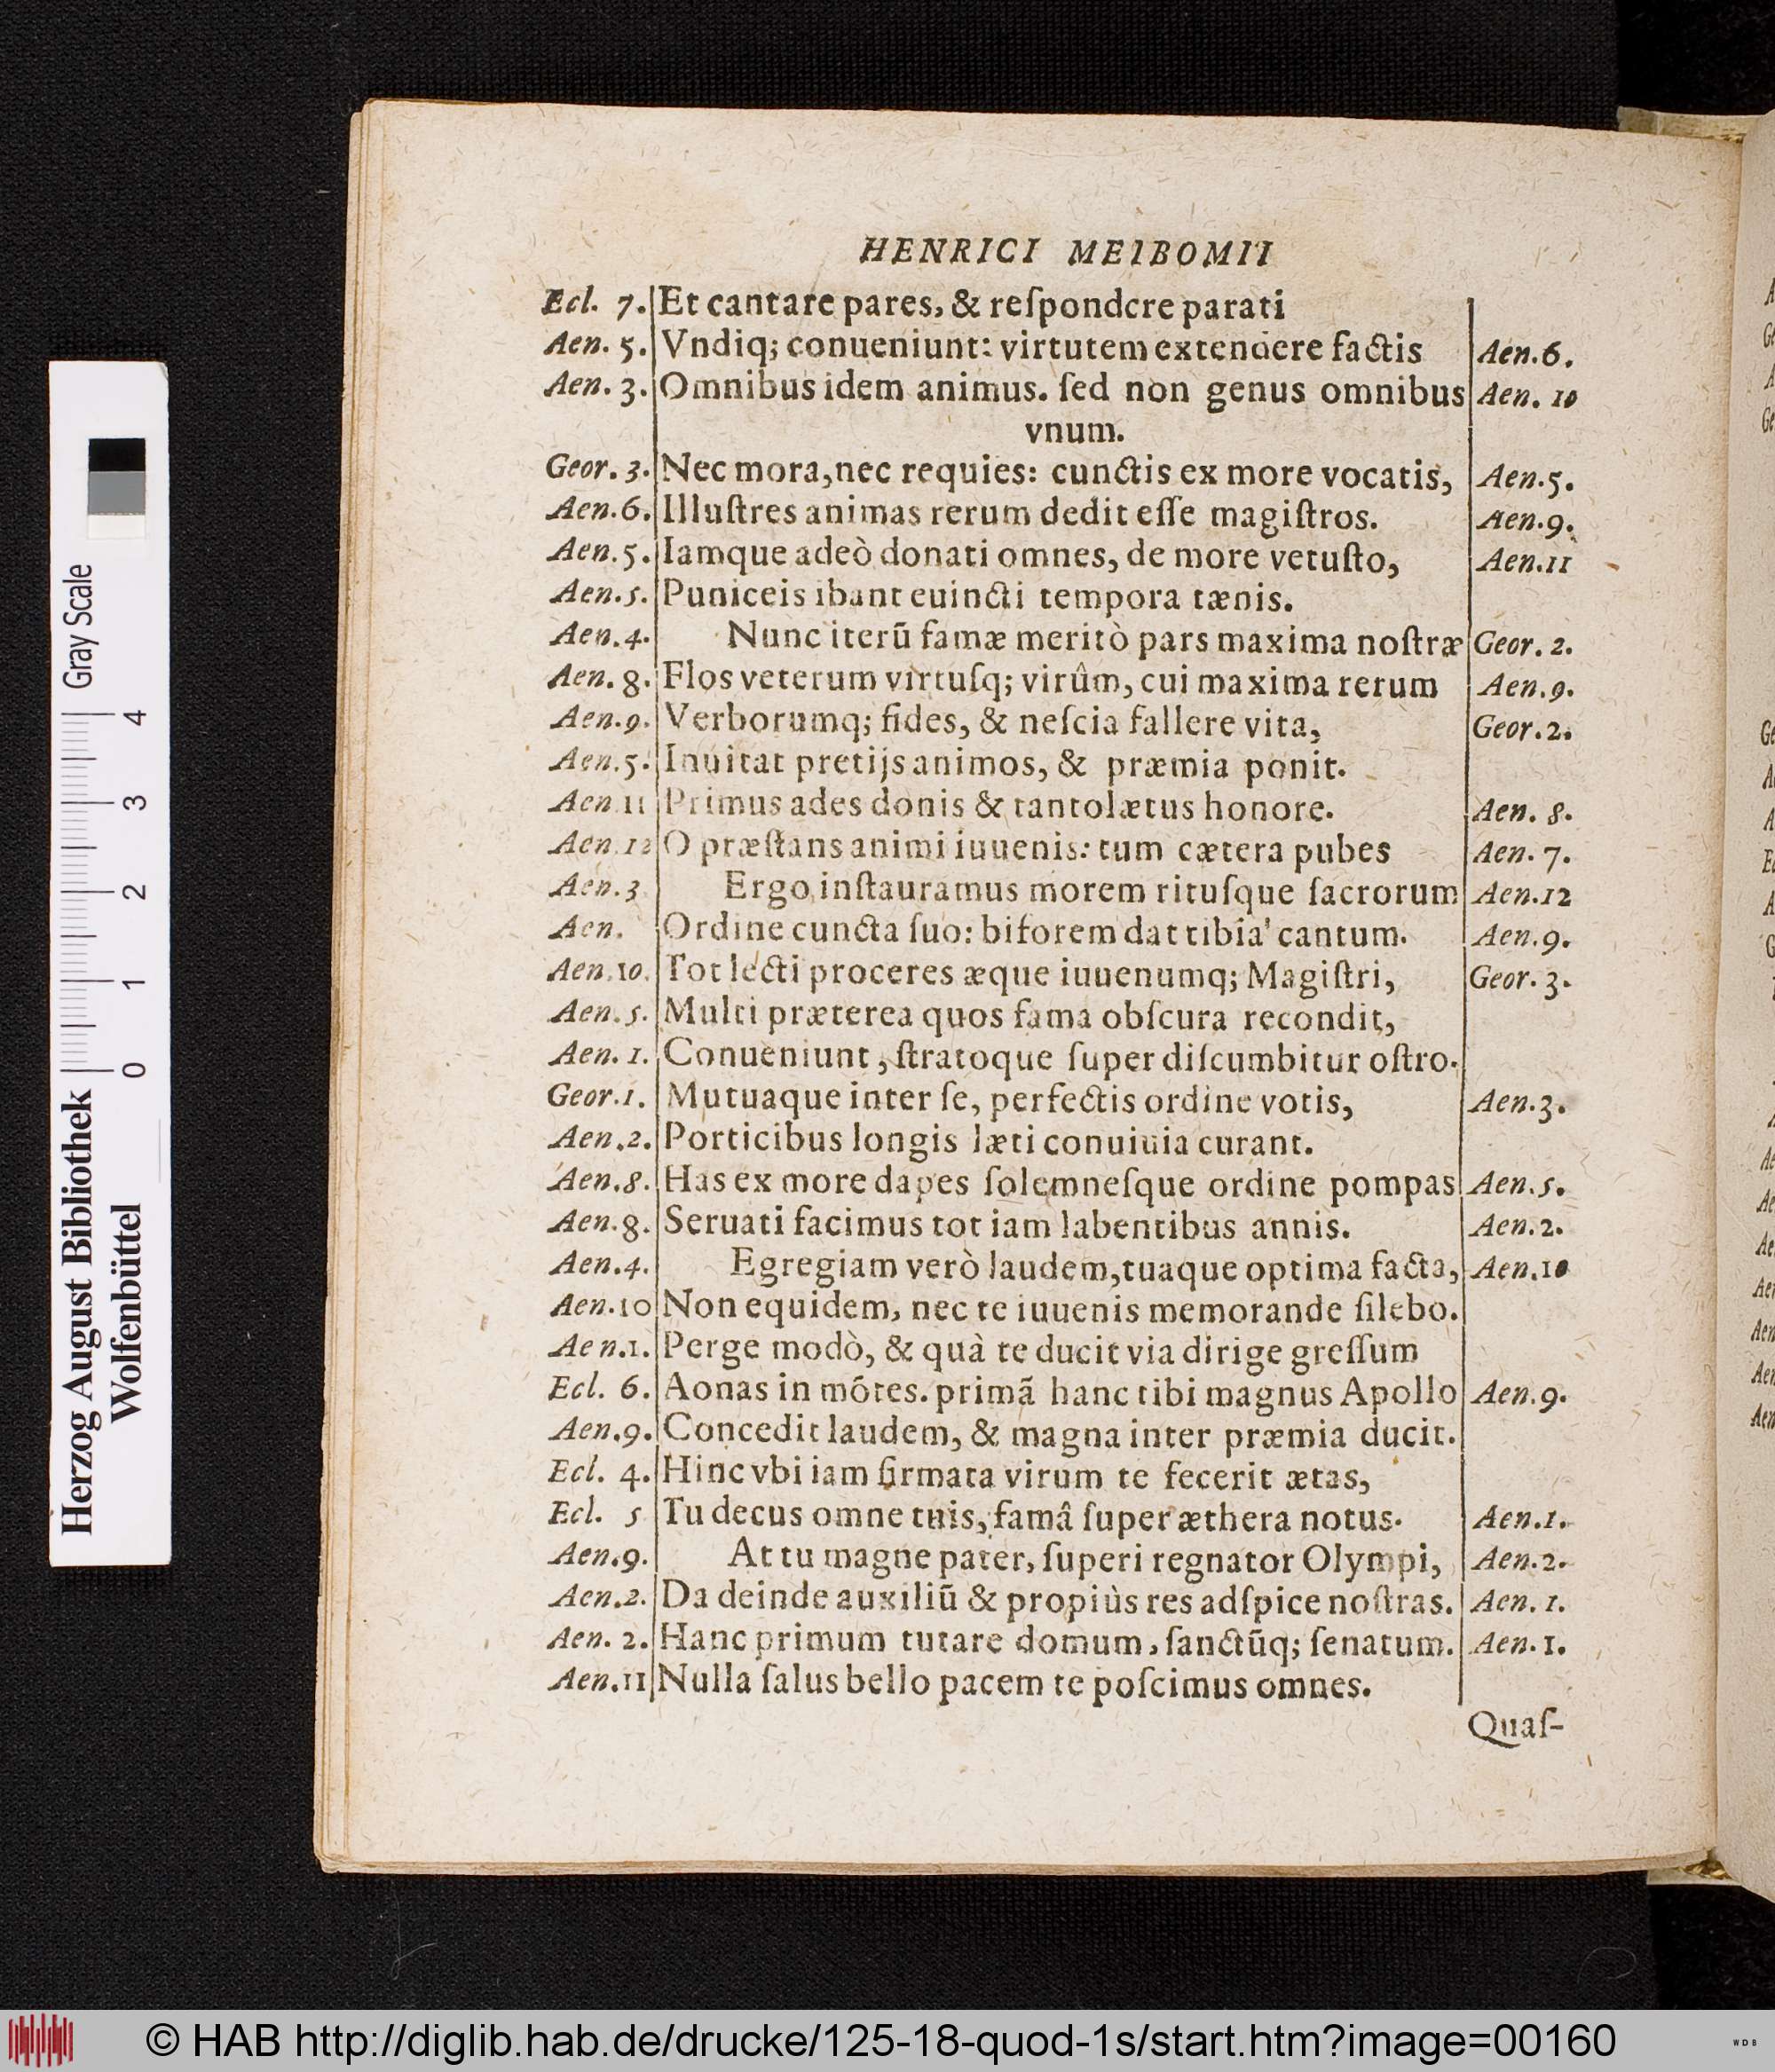 HENRICI MEIBOMII
Ecl. 7. Et cantare pares, & reſpondere parati
Aen. 5. Vndiq; conueniunt: virtutem extendere factis Aen.6.
Aen. 3. Omnibus idem animus. ſed non genus omnibus Aen. 10
vnum.
Geor. 3. Nec mora, nec requies: cunctis ex more vocatis, Aen.5.
Aen.6. Illuſtres animas rerum dedit eſſe magiſtros. Aen.9.
Aen.5. Iamque adeò donati omnes, de more vetuſto, Aen.11
Aen.5. Puniceis ibant euincti tempora tænis.
Aen.4. Nunc iterū famæ meritò pars maxima noſtræ Geor. 2.
Aen. 8. Flos veterum virtuſq; virûm, cui maxima rerum Aen.9.
Aen.9. Verborumq; fides, & neſcia fallere vita, Geor.2.
Aen.5. Inuitat pretijs animos, & præmia ponit.
Aen.11 Primus ades donis & tanto lætus honore. Aen. 8.
Aen.12 O præſtans animi iuuenis: tum cætera pubes Aen. 7.
Aen.3 Ergo inſtauramus morem rituſque ſacrorum Aen.12
Aen. Ordine cuncta ſuo: biforem dat tibia' cantum. Aen.9.
Aen.10. Tot lecti proceres æque iuuenumq; Magiſtri, Geor. 3.
Aen. 5. Multi præterea quos fama obſcura recondit,
Aen. 1. Conueniunt, ſtratoque ſuper diſcumbitur oſtro.
Geor.1. Mutuaque inter ſe, perfectis ordine votis, Aen.3.
Aen.2. Porticibus longis læti conuiuia curant.
Aen.8. Has ex more dapes ſolemneſque ordine pompas Aen.5.
Aen.8. Seruati facimus tot iam labentibus annis. Aen.2.
Aen.4. Egregiam verò laudem, tuaque optima facta, Aen.10
Aen.10 Non equidem, nec te iuuenis memorande ſilebo.
Aen.1. Perge modò, & quà te ducit via dirige greſſum
Ecl. 6. Aonas in mōtes. primā hanc tibi magnus Apollo Aen.9.
Aen.9. Concedit laudem, & magna inter præmia ducit.
Ecl. 4. Hinc vbi iam firmata virum te fecerit ætas,
Ecl. 5 Tu decus omne tuis, famâ ſuper æthera notus. Aen.1.
Aen.9. At tu magne pater, ſuperi regnator Olympi, Aen.2.
Aen.2. Da deinde auxiliū & propiùs res adſpice noſtras. Aen. 1.
Aen. 2. Hanc primum tutare domum, ſanctūq; ſenatum. Aen. 1.
Aen.11 Nulla ſalus bello pacem te poſcimus omnes.
Quaſ-
Herzog August Bibliothek
Wolfenbüttel
0 1 2 3 4
Gray Scale
© HAB http://diglib.hab.de/drucke/125-18-quod-1s/start.htm?image=00160
WDB